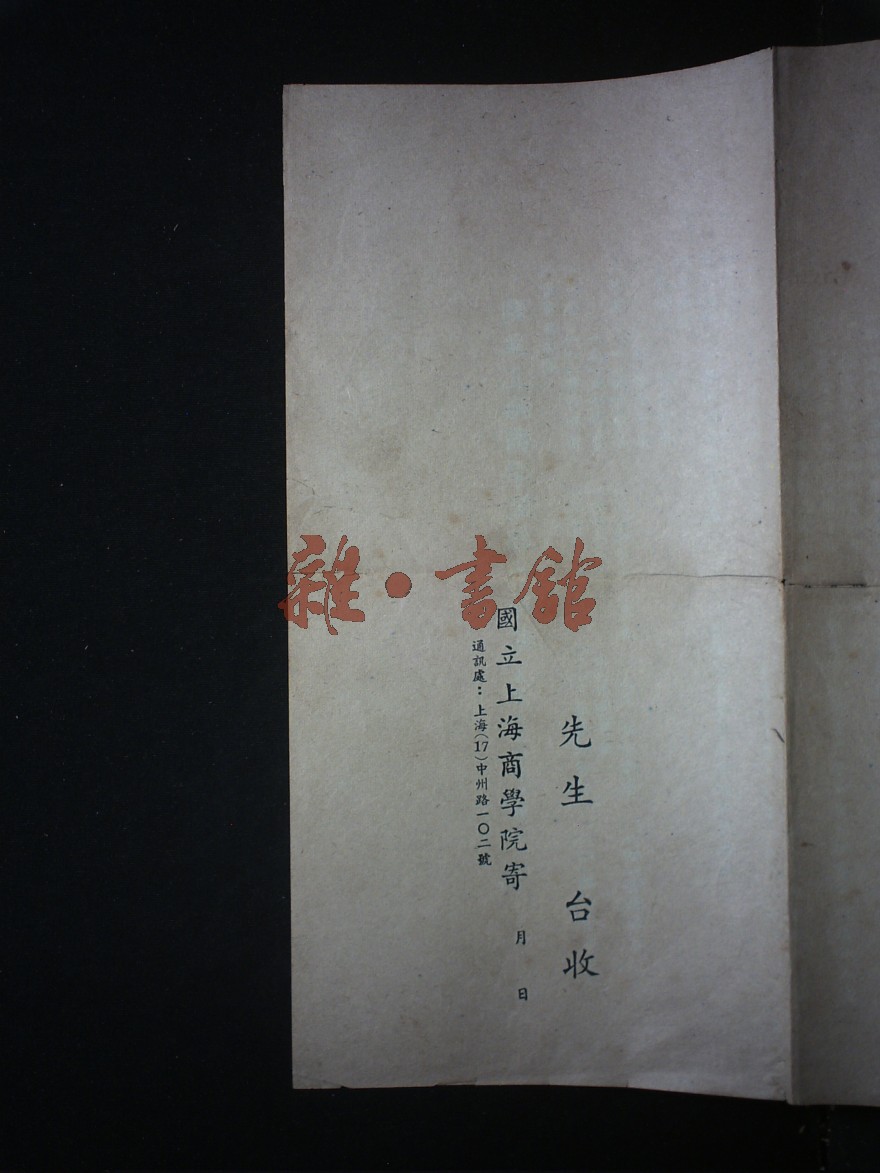 雜·書館
先生 台收
國立上海商學院寄 月 日
通訊處：上海(17)中州路一〇二號